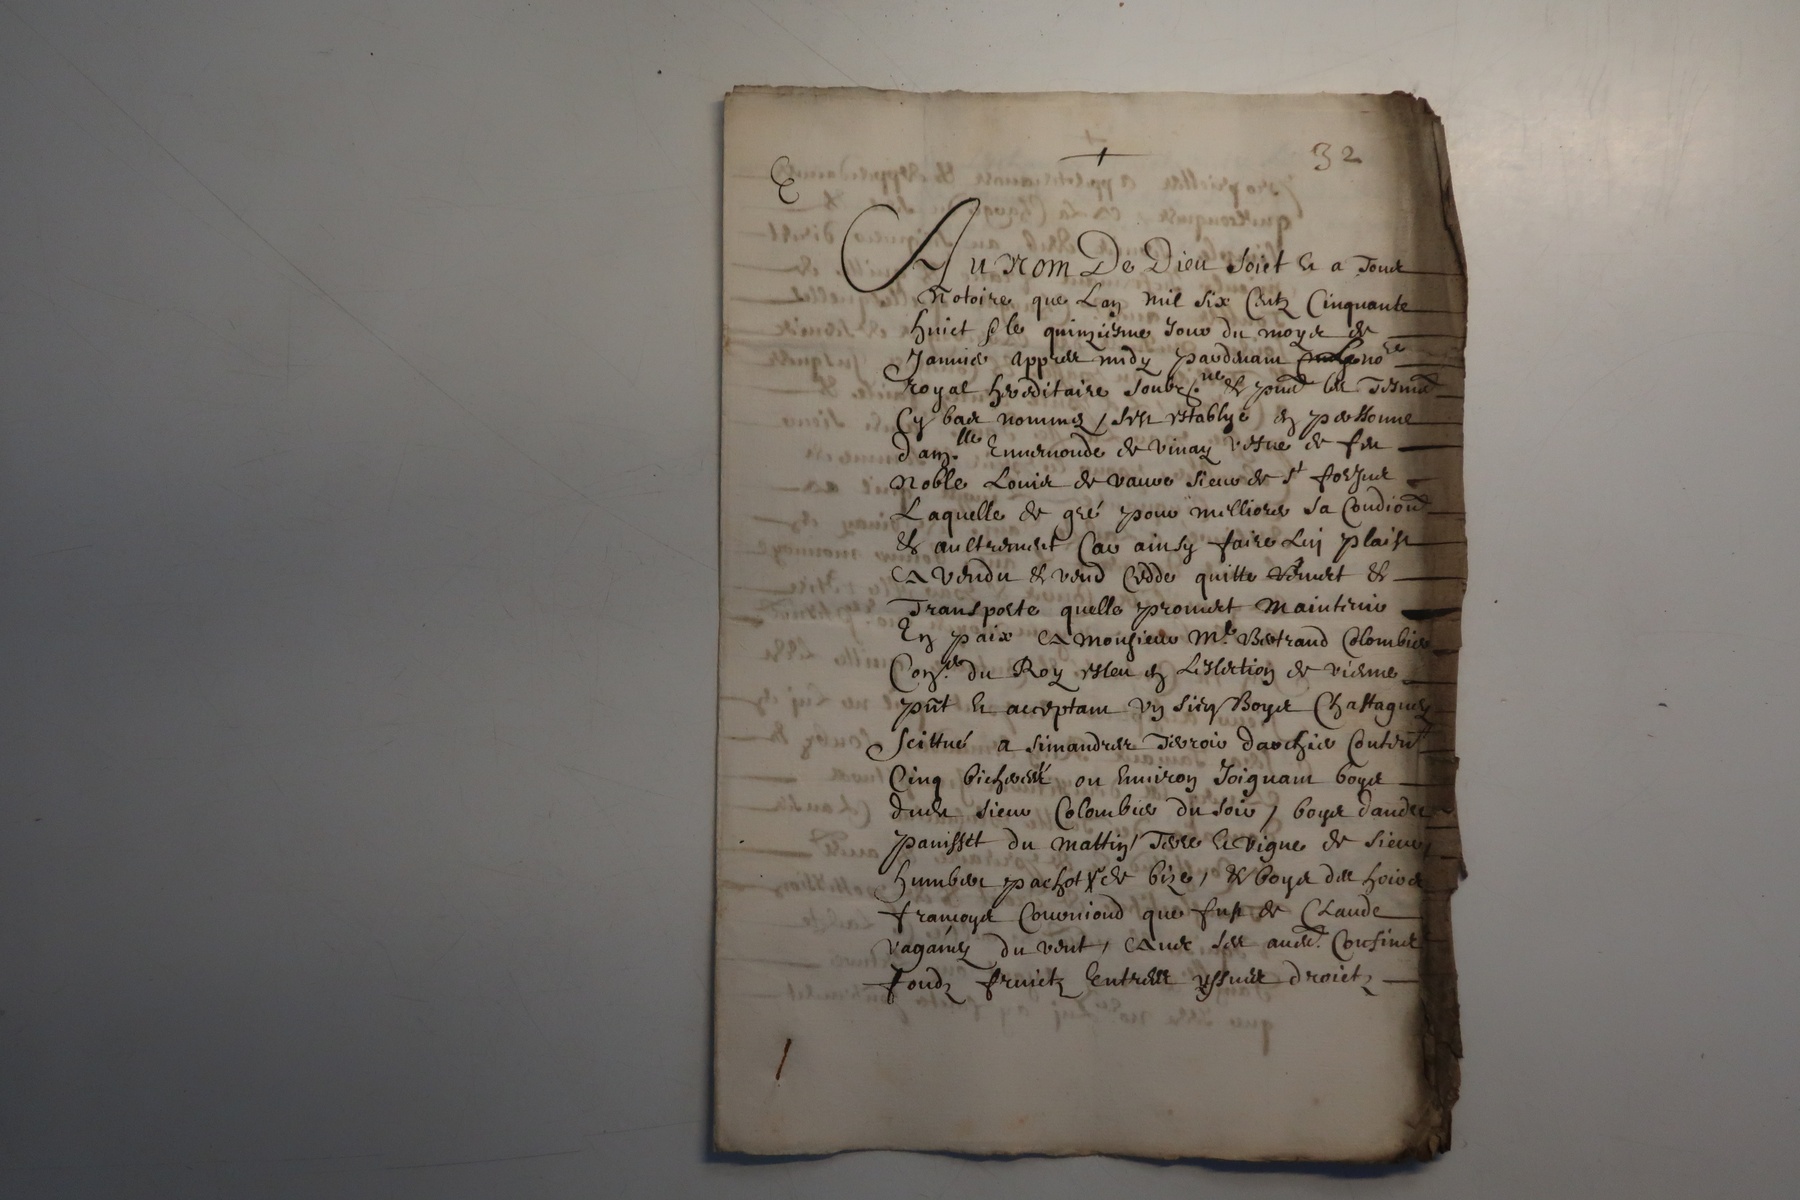 32
E
Au nom De Dieu soict & a Tous
Notoire que Lan mil six Centz Cinquante
huict & le quinziesme Jour du moys de
Janvier appres midy pardevant no.re
royal hereditaire soubz.ne & pntz les Tesmo
Cy bas nommez / sest establye en personne
dam.lle Ennemonde de vinay vefve de feu
Noble Louis de vaure sieur de st forjus
Laquelle de gré pour milliorer sa Condiond
& aultrement Car ainsy faire Luy plaist
A vendu & vend Cedde quitte remet &
Transporte quelle promet maintenir
En paix A monsieur Me Bertrand Colombier
Con.er du Roy esleu en Leslection de vienne
pnt & acceptant un sien Boys Chastagner
Scittué a simandres Terroir darchier Conten
Cinq bicherees ou Environ Joignant boys
dudt sieur Colombier du soir / boys dandre
panisset du mattin / Terre & vigne de sieur
humber pachot de bize / & boys des hoirs
francoys Couvriond que fust de Claude
vaganey du vent / Avec ses autres Confins
fondz fruictz Entrees yssues droictz